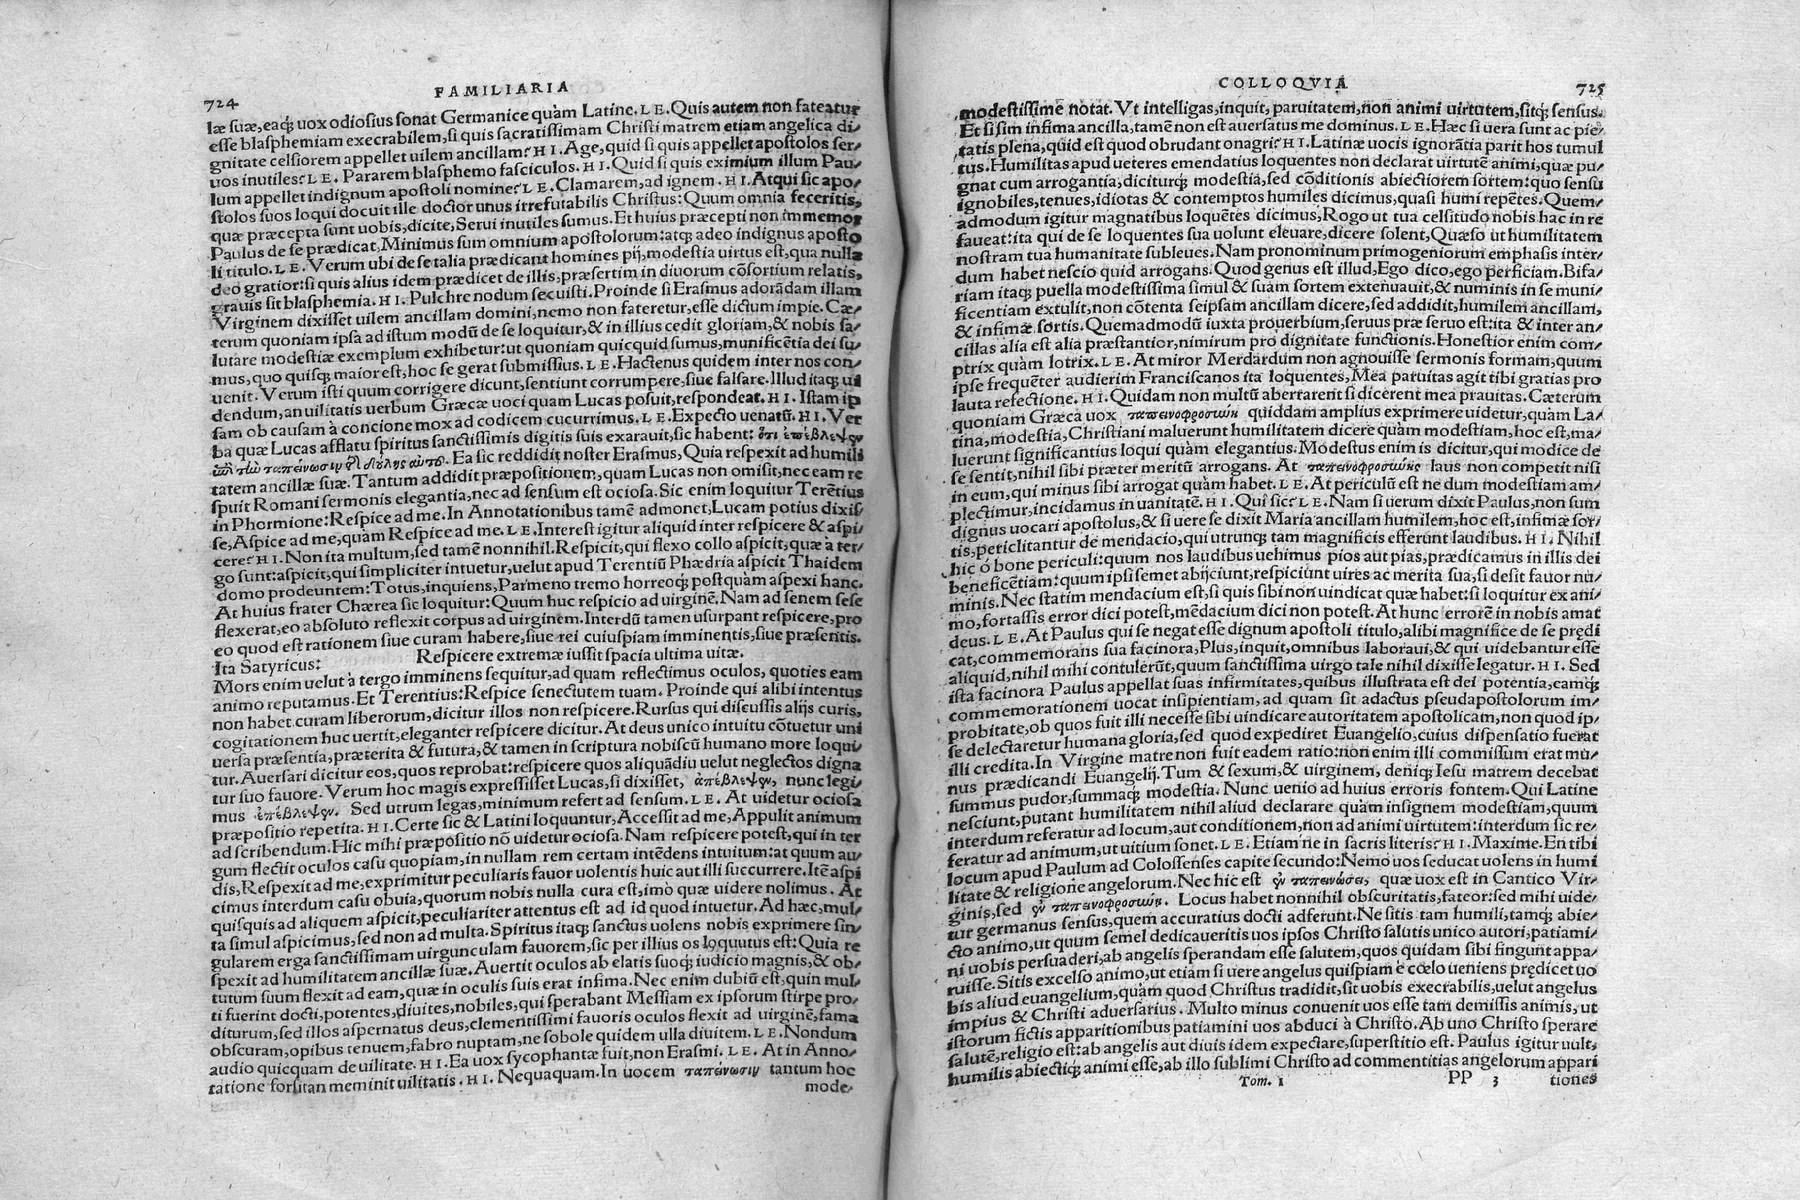 724 FAMILIARIA
læ suæ, eaq́; uox odiosius sonat Germanice quàm Latine. LE. Quis autem non fateatur
esse blasphemiam execrabilem, si quis sacratissimam Christi matrem etiam angelica di-
gnitate celsiorem appellet uilem ancillam? HI. Age, quid si quis appellet apostolos ser-
uos inutiles? LE. Pararem blasphemo fasciculos. HI. Quid si quis eximium illum Pau-
lum appellet indignum apostoli nomine? LE. Clamarem, ad ignem. HI. Atqui sic apo-
stolos suos loqui docuit ille doctor unus irrefutabilis Christus: Quum omnia feceritis,
quæ præcepta sunt uobis, dicite, Serui inutiles sumus. Et huius præcepti non immemor
Paulus de se prædicat, Minimus sum omnium apostolorum: atq́; adeo indignus aposto
li titulo. LE. Verum ubi de se talia prædicant homines pij, modestia uirtus est, qua nulla
deo gratior: si quis alius idem prædicet de illis, præsertim in diuorum cõsortium relatis,
grauis sit blasphemia. HI. Pulchre nodum secuisti. Proinde si Erasmus adorãdam illam
Virginem dixisset uilem ancillam domini, nemo non fateretur, esse dictum impie. Cæ-
terum quoniam ipsa ad istum modũ de se loquitur, & in illius cedit gloriam, & nobis sa-
lutare modestiæ exemplum exhibetur: ut quoniam quicquid sumus, munificẽtia dei su-
mus, quo quisq́; maior est, hoc se gerat submissius. LE. Hactenus quidem inter nos con-
uenit. Verum isti quum corrigere dicunt, sentiunt corrumpere, siue falsare. Illud itaq́; ui
dendum, an uilitatis uerbum Græcæ uoci quam Lucas posuit, respondeat. HI. Istam ip
sam ob causam à concione mox ad codicem cucurrimus. LE. Expecto uenatũ. HI. Ver
ba quæ Lucas afflatu spiritus sanctissimis digitis suis exarauit, sic habent: ὅτι ἐπέβλεψεν
ἐπὶ τὴν ταπείνωσιν τῆς δούλης αὐτοῦ. Ea sic reddidit noster Erasmus, Quia respexit ad humili
tatem ancillæ suæ. Tantum addidit præpositionem, quam Lucas non omisit, nec eam re
spuit Romani sermonis elegantia, nec ad sensum est ociosa. Sic enim loquitur Terẽtius
in Phormione: Respice ad me. In Annotationibus tamẽ admonet, Lucam potius dixis-
se, Aspice ad me, quàm Respice ad me. LE. Interest igitur aliquid inter respicere & aspi-
cere? HI. Non ita multum, sed tamẽ nonnihil. Respicit, qui flexo collo aspicit, quæ à ter-
go sunt: aspicit, qui simpliciter intuetur, uelut apud Terentiũ Phædria aspicit Thaidem
domo prodeuntem: Totus, inquiens, Parmeno tremo horreoq́; postquàm aspexi hanc.
At huius frater Chærea sic loquitur: Quum huc respicio ad uirginẽ. Nam ad senem sese
flexerat, eo absoluto reflexit corpus ad uirginem. Interdũ tamen usurpant respicere, pro
eo quod est rationem siue curam habere, siue rei cuiuspiam imminentis, siue præsentis.
Ita Satyricus: Respicere extremæ iussit spacia ultima uitæ.
Mors enim uelut à tergo imminens sequitur, ad quam reflectimus oculos, quoties eam
animo reputamus. Et Terentius: Respice senectutem tuam. Proinde qui alibi intentus
non habet curam liberorum, dicitur illos non respicere. Rursus qui discussis alijs curis,
cogitationem huc uertit, eleganter respicere dicitur. At deus unico intuitu cõtuetur uni
uersa præsentia, præterita & futura, & tamen in scriptura nobiscũ humano more loqui-
tur. Auersari dicitur eos, quos reprobat: respicere quos aliquãdiu uelut neglectos digna
tur suo fauore. Verum hoc magis expressisset Lucas, si dixisset, ἀπέβλεψεν, nunc legi-
mus ἐπέβλεψεν. Sed utrum legas, minimum refert ad sensum. LE. At uidetur ociosa
præpositio repetita. HI. Certe sic & Latini loquuntur, Accessit ad me, Appulit animum
ad scribendum. Hic mihi præpositio nõ uidetur ociosa. Nam respicere potest, qui in ter
gum flectit oculos casu quopiam, in nullam rem certam intẽdens intuitum: at quum au-
dis, Respexit ad me, exprimitur peculiaris fauor uolentis huic aut illi succurrere. Itẽ aspi
cimus interdum casu obuia, quorum nobis nulla cura est, imò quæ uidere nolimus. At
quisquis ad aliquem aspicit, peculiariter attentus est ad id quod intuetur. Ad hæc, mul-
ta simul aspicimus, sed non ad multa. Spiritus itaq́; sanctus uolens nobis exprimere sin-
gularem erga sanctissimam uirgunculam fauorem, sic per illius os loquutus est: Quia re
spexit ad humilitatem ancillæ suæ. Auertit oculos ab elatis suoq́; iudicio magnis, & ob-
tutum suum flexit ad eam, quæ in oculis suis erat infima. Nec enim dubiũ est, quin mul-
ti fuerint docti, potentes, diuites, nobiles, qui sperabant Messiam ex ipsorum stirpe pro-
diturum, sed illos aspernatus deus, clementissimi fauoris oculos flexit ad uirginẽ, fama
obscuram, opibus tenuem, fabro nuptam, ne sobole quidem ulla diuitem. LE. Nondum
audio quicquam de uilitate. HI. Ea uox sycophantæ fuit, non Erasmi. LE. At in Anno-
tatione forsitan meminit uilitatis. HI. Nequaquam. In uocem ταπείνωσιν tantum hoc
mode-
COLLOQVIA 725
modestissime notat. Vt intelligas, inquit, paruitatem, non animi uirtutem, sitq́; sensus.
Et si sim infima ancilla, tamẽ non est auersatus me dominus. LE. Hæc si uera sunt ac pie-
tatis plena, quid est quod obrudant onagri? HI. Latinæ uocis ignorãtia parit hos tumul
tus. Humilitas apud ueteres emendatius loquentes non declarat uirtutẽ animi, quæ pu-
gnat cum arrogantia, diciturq́; modestia, sed cõditionis abiectiorem sortem: quo sensu
ignobiles, tenues, idiotas & contemptos humiles dicimus, quasi humi repẽtes. Quem-
admodum igitur magnatibus loquẽtes dicimus, Rogo ut tua celsitudo nobis hac in re
faueat: ita qui de se loquentes sua uolunt eleuare, dicere solent, Quæso ut humilitatem
nostram tua humanitate subleues. Nam pronominum primogeniorum emphasis inter-
dum habet nescio quid arrogans. Quod genus est illud, Ego dico, ego perficiam. Bifa-
riam itaq́; puella modestissima simul & suam sortem extenuauit, & numinis in se muni-
ficentiam extulit, non cõtenta seipsam ancillam dicere, sed addidit, humilem ancillam,
& infimæ sortis. Quemadmodũ iuxta prouerbium, seruus præ seruo est: ita & inter an-
cillas alia est alia præstantior, nimirum pro dignitate functionis. Honestior enim com-
ptrix quàm lotrix. LE. At miror Merdardum non agnouisse sermonis formam, quum
ipse frequẽter audierim Franciscanos ita loquentes, Mea paruitas agit tibi gratias pro
lauta refectione. HI. Quidam non multũ aberrarent si dicerent mea prauitas. Cæterum
quoniam Græca uox ταπεινοφροσύνη quiddam amplius exprimere uidetur, quàm La-
tina, modestia, Christiani maluerunt humilitatem dicere quàm modestiam, hoc est, ma-
luerunt significantius loqui quàm elegantius. Modestus enim is dicitur, qui modice de
se sentit, nihil sibi præter meritũ arrogans. At ταπεινοφροσύνης laus non competit nisi
in eum, qui minus sibi arrogat quàm habet. LE. At periculũ est ne dum modestiam am-
plectimur, incidamus in uanitatẽ. HI. Qui sic? LE. Nam si uerum dixit Paulus, non sum
dignus uocari apostolus, & si uere se dixit Maria ancillam humilem, hoc est, infimæ sor-
tis, periclitantur de mendacio, qui utrunq́; tam magnificis efferunt laudibus. HI. Nihil
hic ô bone periculi: quum nos laudibus uehimus pios aut pias, prædicamus in illis dei
beneficẽtiam: quum ipsi semet abijciunt, respiciunt uires ac merita sua, si desit fauor nu-
minis. Nec statim mendacium est, si quis sibi non uindicat quæ habet: si loquitur ex ani-
mo, fortassis error dici potest, mẽdacium dici non potest. At hunc errorẽ in nobis amat
deus. LE. At Paulus qui se negat esse dignum apostoli titulo, alibi magnifice de se prędi
cat, commemorans sua facinora, Plus, inquit, omnibus laboraui, & qui uidebantur esse
aliquid, nihil mihi contulerũt, quum sanctissima uirgo tale nihil dixisse legatur. HI. Sed
ista facinora Paulus appellat suas infirmitates, quibus illustrata est dei potentia, eamq́;
commemorationem uocat insipientiam, ad quam sit adactus pseudapostolorum im-
probitate, ob quos fuit illi necesse sibi uindicare autoritatem apostolicam, non quod ip-
se delectaretur humana gloria, sed quod expediret Euangelio, cuius dispensatio fuerat
illi credita. In Virgine matre non fuit eadem ratio: non enim illi commissum erat mu-
nus prædicandi Euangelij. Tum & sexum, & uirginem, deniq́; Iesu matrem decebat
summus pudor, summaq́; modestia. Nunc uenio ad huius erroris fontem. Qui Latine
nesciunt, putant humilitatem nihil aliud declarare quàm insignem modestiam, quum
interdum referatur ad locum, aut conditionem, non ad animi uirtutem: interdum sic re-
feratur ad animum, ut uitium sonet. LE. Etiam ne in sacris literis? HI. Maxime. En tibi
locum apud Paulum ad Colossenses capite secundo: Nemo uos seducat uolens in humi
litate & religione angelorum. Nec hic est ἐν ταπεινώσει, quæ uox est in Cantico Vir-
ginis, sed ἐν ταπεινοφροσύνη. Locus habet nonnihil obscuritatis, fateor: sed mihi uide-
tur germanus sensus, quem accuratius docti adferunt. Ne sitis tam humili, tamq́; abie-
cto animo, ut quum semel dedicaueritis uos ipsos Christo salutis unico autori, patiami-
ni uobis persuaderi, ab angelis sperandam esse salutem, quos quidam sibi fingunt appa-
ruisse. Sitis excelso animo, ut etiam si uere angelus quispiam e cœlo ueniens prędicet uo
bis aliud euangelium, quàm quod Christus tradidit, sit uobis execrabilis, uelut angelus
impius & Christi aduersarius. Multo minus conuenit uos esse tam demissis animis, ut
istorum fictis apparitionibus patiamini uos abduci à Christo. Ab uno Christo sperare
salutẽ, religio est: ab angelis aut diuis idem expectare, superstitio est. Paulus igitur uult,
humilis abiectiq́; animi esse, ab illo sublimi Christo ad commentitias angelorum appari
Tom. 1 PP 3 tiones